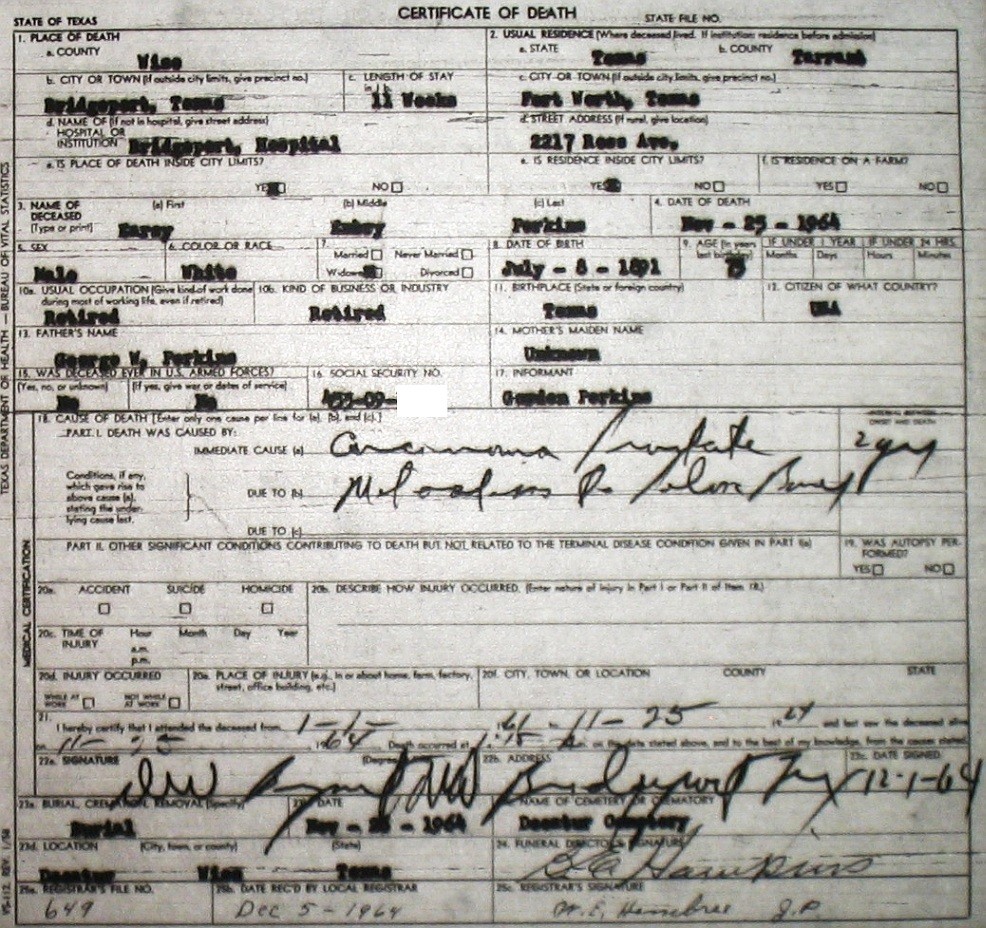 CERTIFICATE OF DEATH
STATE OF TEXAS STATE FILE NO.
1. PLACE OF DEATH 2. USUAL RESIDENCE (Where deceased lived. If institution: residence before admission)
a. COUNTY a. STATE b. COUNTY
Wise Texas Tarrant
b. CITY OR TOWN (If outside city limits, give precinct no.) c. LENGTH OF STAY c. CITY OR TOWN (If outside city limits, give precinct no.)
in 1 b
Bridgeport, Texas 11 Weeks Fort Worth, Texas
d. NAME OF (If not in hospital, give street address) d. STREET ADDRESS (If rural, give location)
HOSPITAL OR
INSTITUTION Bridgeport, Hospital 2217 Ross Ave,
e. IS PLACE OF DEATH INSIDE CITY LIMITS? e. IS RESIDENCE INSIDE CITY LIMITS? f. IS RESIDENCE ON A FARM?
YES NO YES NO YES NO
3. NAME OF (a) First (b) Middle (c) Last 4. DATE OF DEATH
DECEASED
(Type or print) Perkins Nov - 25 - 1964
5. SEX 6. COLOR OR RACE 7. 8. DATE OF BIRTH 9. AGE (In years IF UNDER 1 YEAR IF UNDER 24 HRS.
Married Never Married last birthday) Months Days Hours Minutes
Male White Widowed Divorced July - 8 - 1891 73
10a. USUAL OCCUPATION (Give kind of work done 10b. KIND OF BUSINESS OR INDUSTRY 11. BIRTHPLACE (State or foreign country) 12. CITIZEN OF WHAT COUNTRY?
during most of working life, even if retired)
Retired Retired Texas USA
13. FATHER'S NAME 14. MOTHER'S MAIDEN NAME
George W, Perkins Unknown
15. WAS DECEASED EVER IN U.S. ARMED FORCES? 16. SOCIAL SECURITY NO. 17. INFORMANT
(Yes, no, or unknown) (If yes, give war or dates of service)
No No 453-09- Perkins
18. CAUSE OF DEATH [Enter only one cause per line for (a), (b), and (c).] INTERVAL BETWEEN
ONSET AND DEATH
PART I. DEATH WAS CAUSED BY:
IMMEDIATE CAUSE (a) Carcinoma Prostate 2 yrs
Conditions, if any,
which gave rise to
above cause (a), DUE TO (b)
stating the under-
lying cause last.
DUE TO (c)
PART II. OTHER SIGNIFICANT CONDITIONS CONTRIBUTING TO DEATH BUT NOT RELATED TO THE TERMINAL DISEASE CONDITION GIVEN IN PART I(a) 19. WAS AUTOPSY PER-
FORMED?
YES NO
MEDICAL CERTIFICATION
20a. ACCIDENT SUICIDE HOMICIDE 20b. DESCRIBE HOW INJURY OCCURRED. (Enter nature of injury in Part I or Part II of item 18.)
20c. TIME OF Hour Month Day Year
INJURY a.m.
p.m.
20d. INJURY OCCURRED 20e. PLACE OF INJURY (e.g., in or about home, farm, factory, 20f. CITY, TOWN, OR LOCATION COUNTY STATE
street, office building, etc.)
WHILE AT WORK NOT WHILE AT WORK
21.
I hereby certify that I attended the deceased from 1-1- 61 to 11-25 1964 and last saw the deceased alive
on 11-25 1964 Death occurred at m. on the date stated above, and to the best of my knowledge, from the causes stated.
22a. SIGNATURE (Degree 22b. ADDRESS 22c. DATE SIGNED
MD Bridgeport Tex 12-1-64
23a. BURIAL, CREMATION, REMOVAL (Specify) 23b. DATE 23c. NAME OF CEMETERY OR CREMATORY
Burial 1964 Decatur Cemetery
23d. LOCATION (City, town, or county) (State) 24. FUNERAL DIRECTOR'S SIGNATURE
Decatur Wise Texas Hawkins
25a. REGISTRAR'S FILE NO. 25b. DATE REC'D BY LOCAL REGISTRAR 25c. REGISTRAR'S SIGNATURE
649 Dec 5-1964 J.P.
TEXAS DEPARTMENT OF HEALTH — BUREAU OF VITAL STATISTICS
VS-112 REV. 1/58